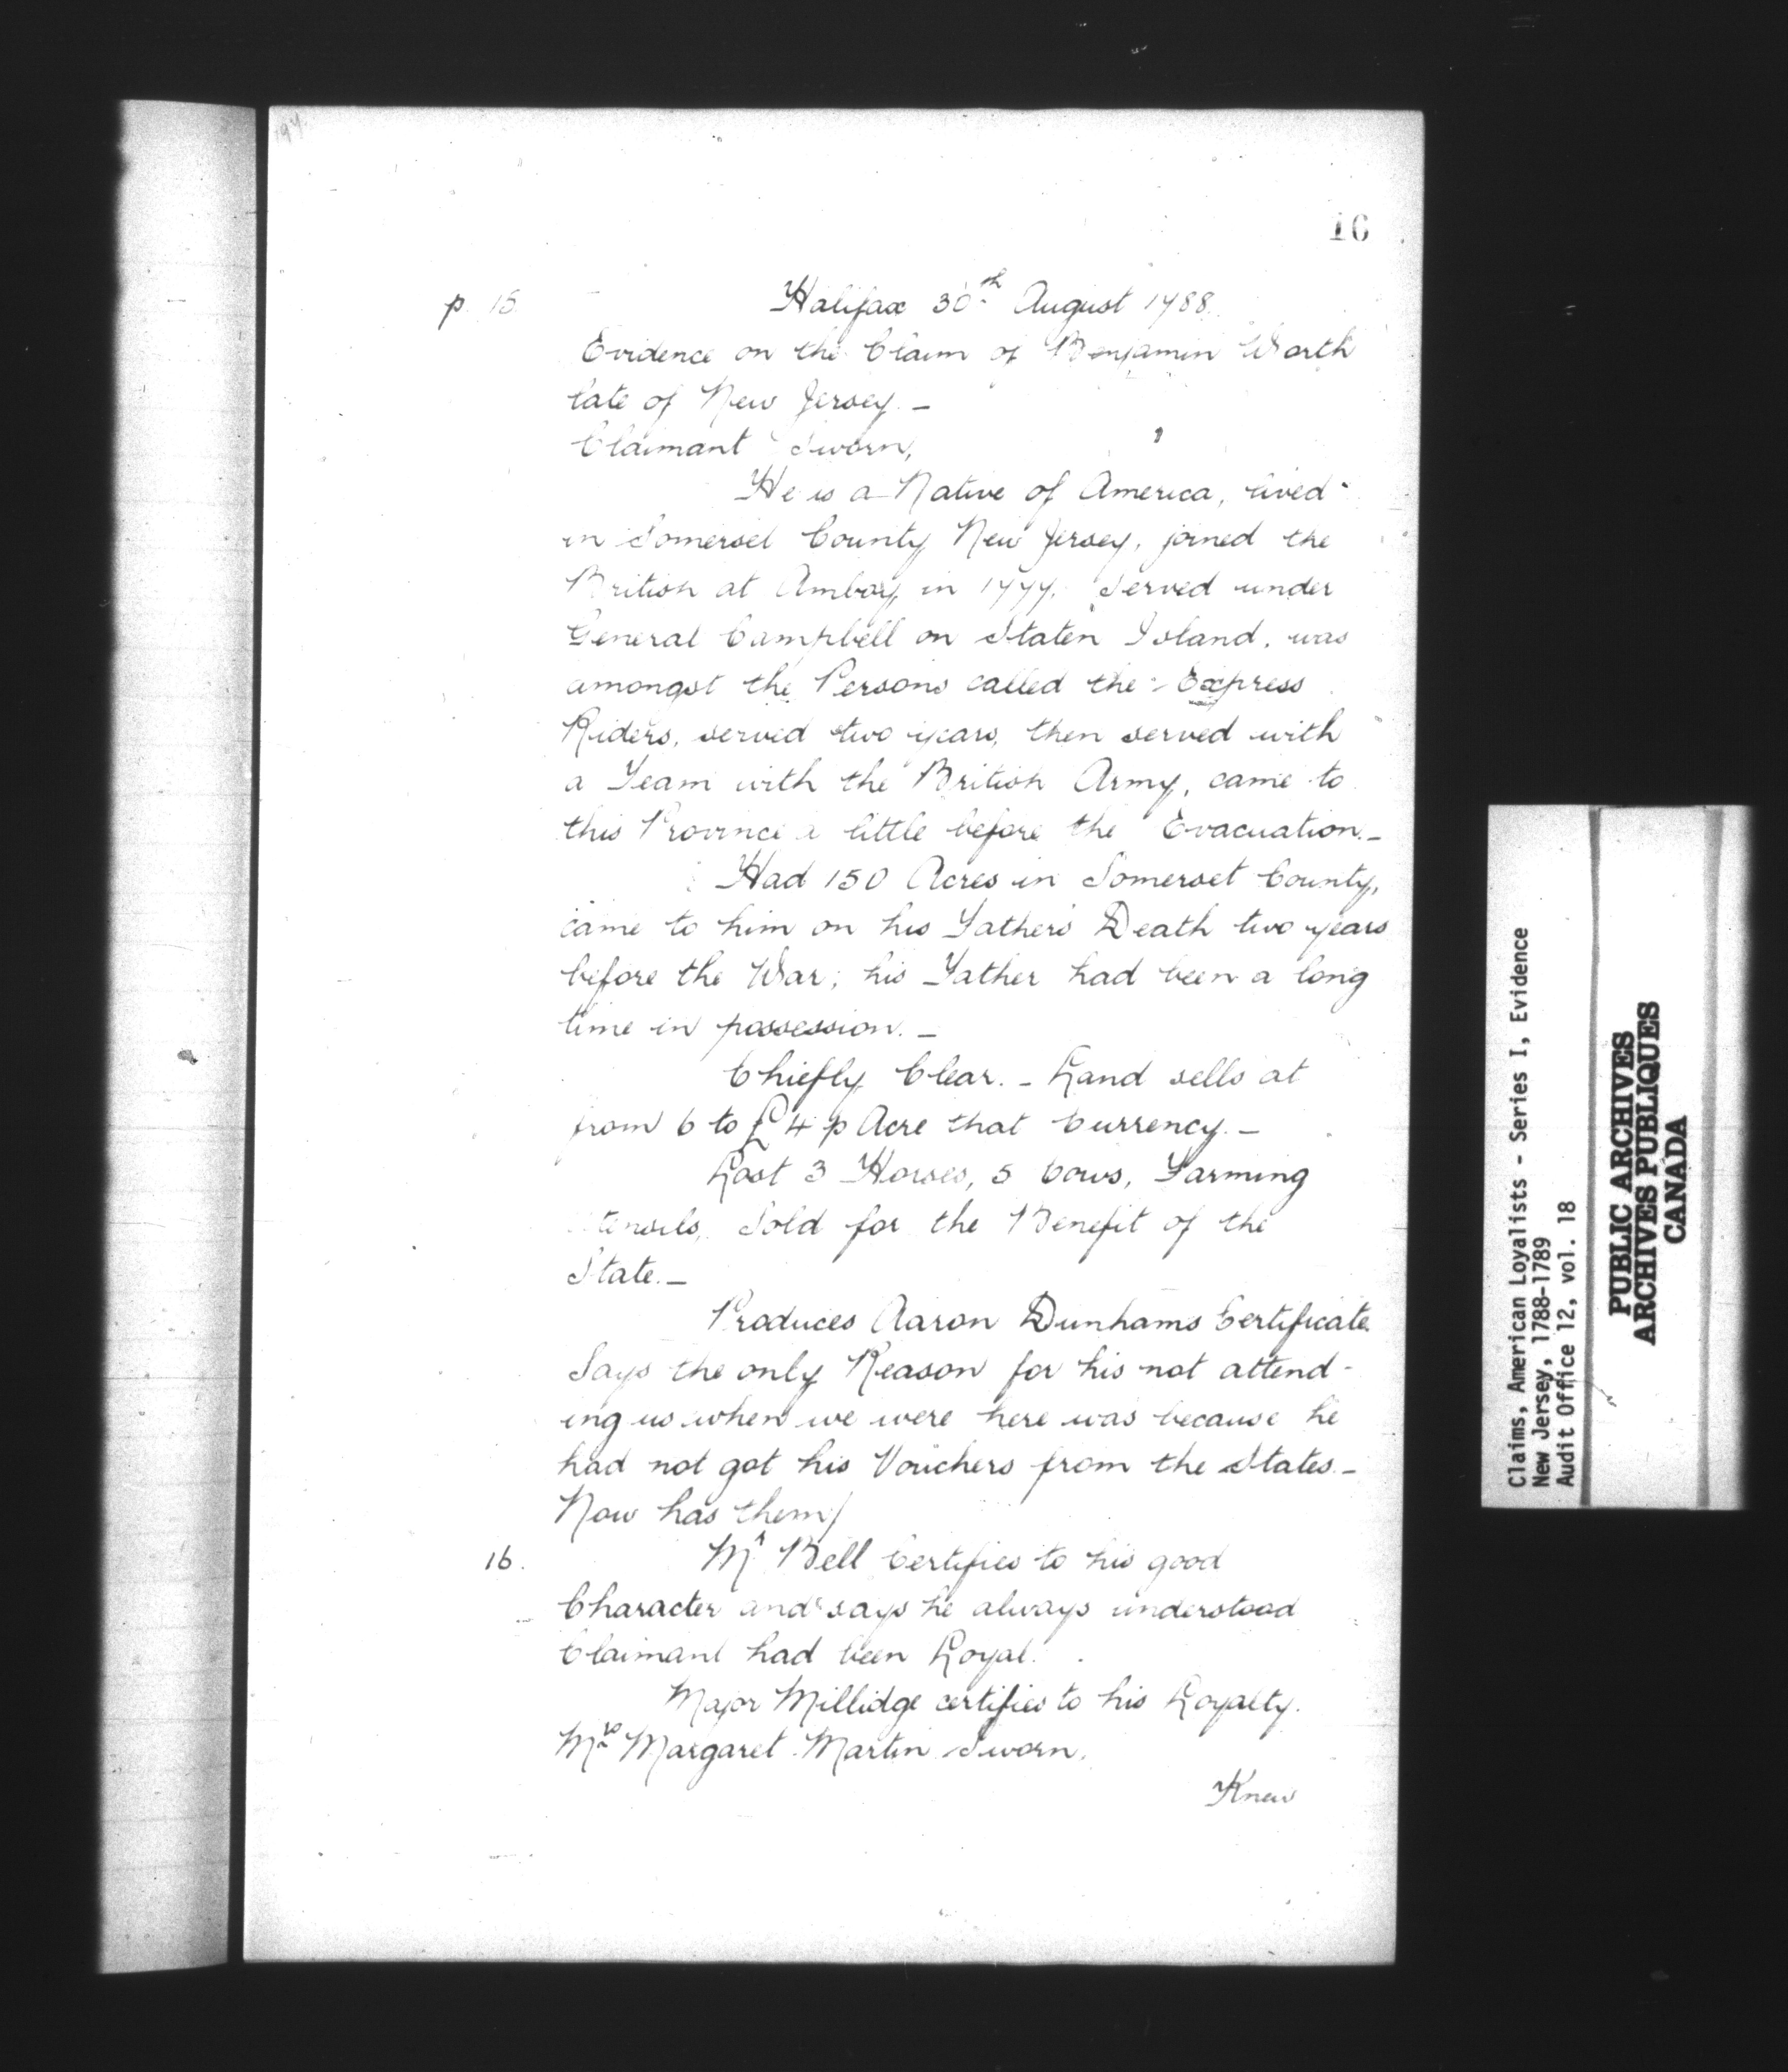 16
p. 15. Halifax 30th August 1788.
Evidence on the Claim of Benjamin Worth
late of New Jersey. —
Claimant Sworn,
He is a Native of America, lived
in Somerset County New Jersey, joined the
British at Amboy in 1777. Served under
General Campbell on Staten Island, was
amongst the Persons called the Express
Riders, served two years, then served with
a Team with the British Army, came to
this Province a little before the Evacuation. —
Had 150 Acres in Somerset County,
came to him on his Father's Death two years
before the War; his Father had been a long
time in possession. —
Chiefly Clear. — Land sells at
from 6 to £4 p Acre that Currency. —
Lost 3 Horses, 5 Cows, Farming
tensils, Sold for the Benefit of the
State. —
Produces Aaron Dunhams Certificate.
Says the only Reason for his not attend-
ing us when we were here was because he
had not got his Vouchers from the States. —
Now has them/
16. Mr Bell Certifies to his good
Character and says he always understood
Claimant had been Loyal.
Major Millidge certifies to his Loyalty.
Mrs Margaret Martin Sworn.
Knew
Claims, American Loyalists - Series I, Evidence
New Jersey, 1788-1789
Audit Office 12, vol. 18
PUBLIC ARCHIVES
ARCHIVES PUBLIQUES
CANADA